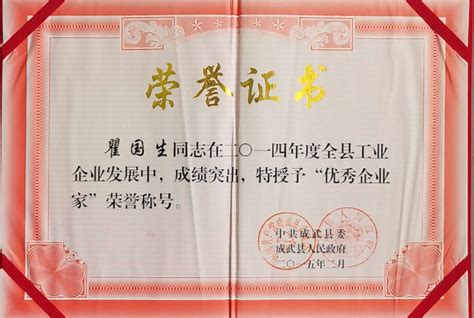 荣誉证书
瞿国生同志在二〇一四年度全县工业
企业发展中，成绩突出，特授予“优秀企业
家”荣誉称号。
中共成武县委
成武县人民政府
二〇一五年二月